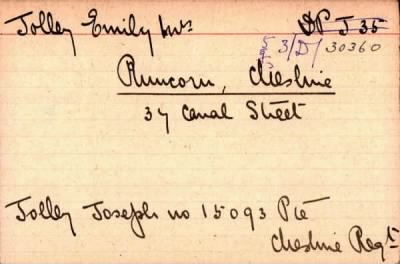 Jolley Emily Mrs DP J 35
3/D/ 30360
Runcorn, Cheshire
37 Canal Street
Jolley Joseph no 15093 Pte
Cheshire Regt